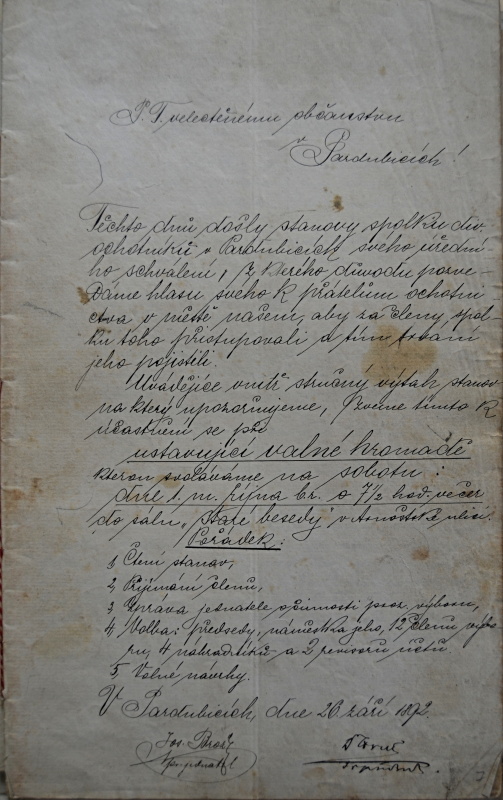 P. T. velectěnému občanstvu
v Pardubicích!
Těchto dnů došly stanovy spolku div.
ochotníků v Pardubicích svého úřední-
ho schválení, z kteréhož důvodu pozve-
dáme hlasu svého k přátelům ochotni-
ctva v městě našem, aby za členy spol-
ku toho přistupovali a tím trvání
jeho pojistili.
Uvádějíce vnitř stručný výtah stanov
na který upozorňujeme, zveme tímto k
účastnění se při
ustavující valné hromadě
kterou svoláváme na sobotu:
dne 1. m. října br. o 7½ hod. večer
do sálu „Staré besedy" v Arnoštské ulici.
Pořádek:
1, Čtení stanov,
2, Přijímání členů,
3, Zpráva jednatele o činnosti proz. výboru,
4, Volba: předsedy, náměstka jeho, 12 členů výbo-
ru, 4 náhradníků a 2 revisorů účtů.
5, Volné návrhy.
V Pardubicích, dne 26 září 1892.
Jos.